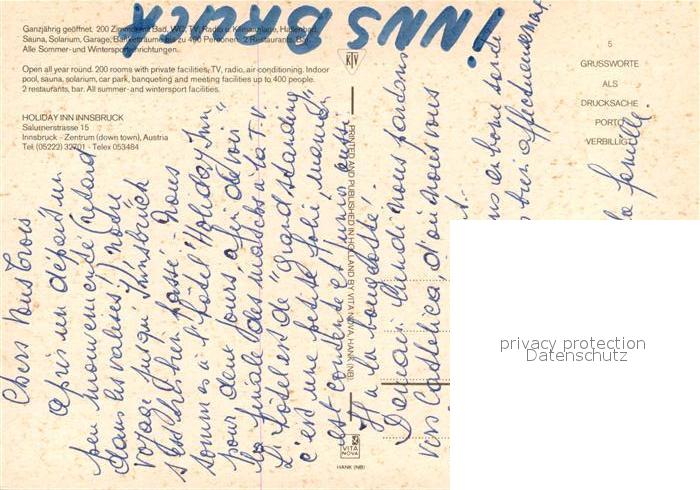 INNSBRUCK !
Ganzjährig geöffnet. 200 Zimmer mit Bad, WC, TV, Radio u. Klimaanlage, Hallenbad,
Sauna, Solarium, Garage, Banketträume bis zu 400 Personen. 2 Restaurants, Bar.
Alle Sommer- und Wintersporteinrichtungen.
Open all year round. 200 rooms with private facilities, TV, radio, air-conditioning. Indoor
pool, sauna, solarium, car park, banqueting and meeting facilities up to 400 people.
2 restaurants, bar. All summer- and wintersport facilities.
HOLIDAY INN INNSBRUCK
Salurnerstrasse 15
Innsbruck - Zentrum (down town), Austria
Tel. (05222) 32701 - Telex 053484
KTV
5
GRUSSWORTE
ALS
DRUCKSACHE
PORTO
VERBILLIGT
PRINTED AND PUBLISHED IN HOLLAND BY VITA NOVA HANK (NB)
VITA
NOVA
HANK (NB)
Chers Vous trois
Après un départ un
peu mouvementé (retard
dans les valises) notre
voyage jusqu'Innsbrück
s'est très bien passé - Nous
sommes à l'hôtel "Holiday Inn"
pour deux jours afin de voir
la finale des matchs à la TV
L'hôtel est de "Grand standing"
c'est une petite folie, maman
est contente et
à la
Demain lundi nous partons
vers Castleticca, d'où nous vous
en bonne santé
bien affectueusement
la famille.
privacy protection
Datenschutz